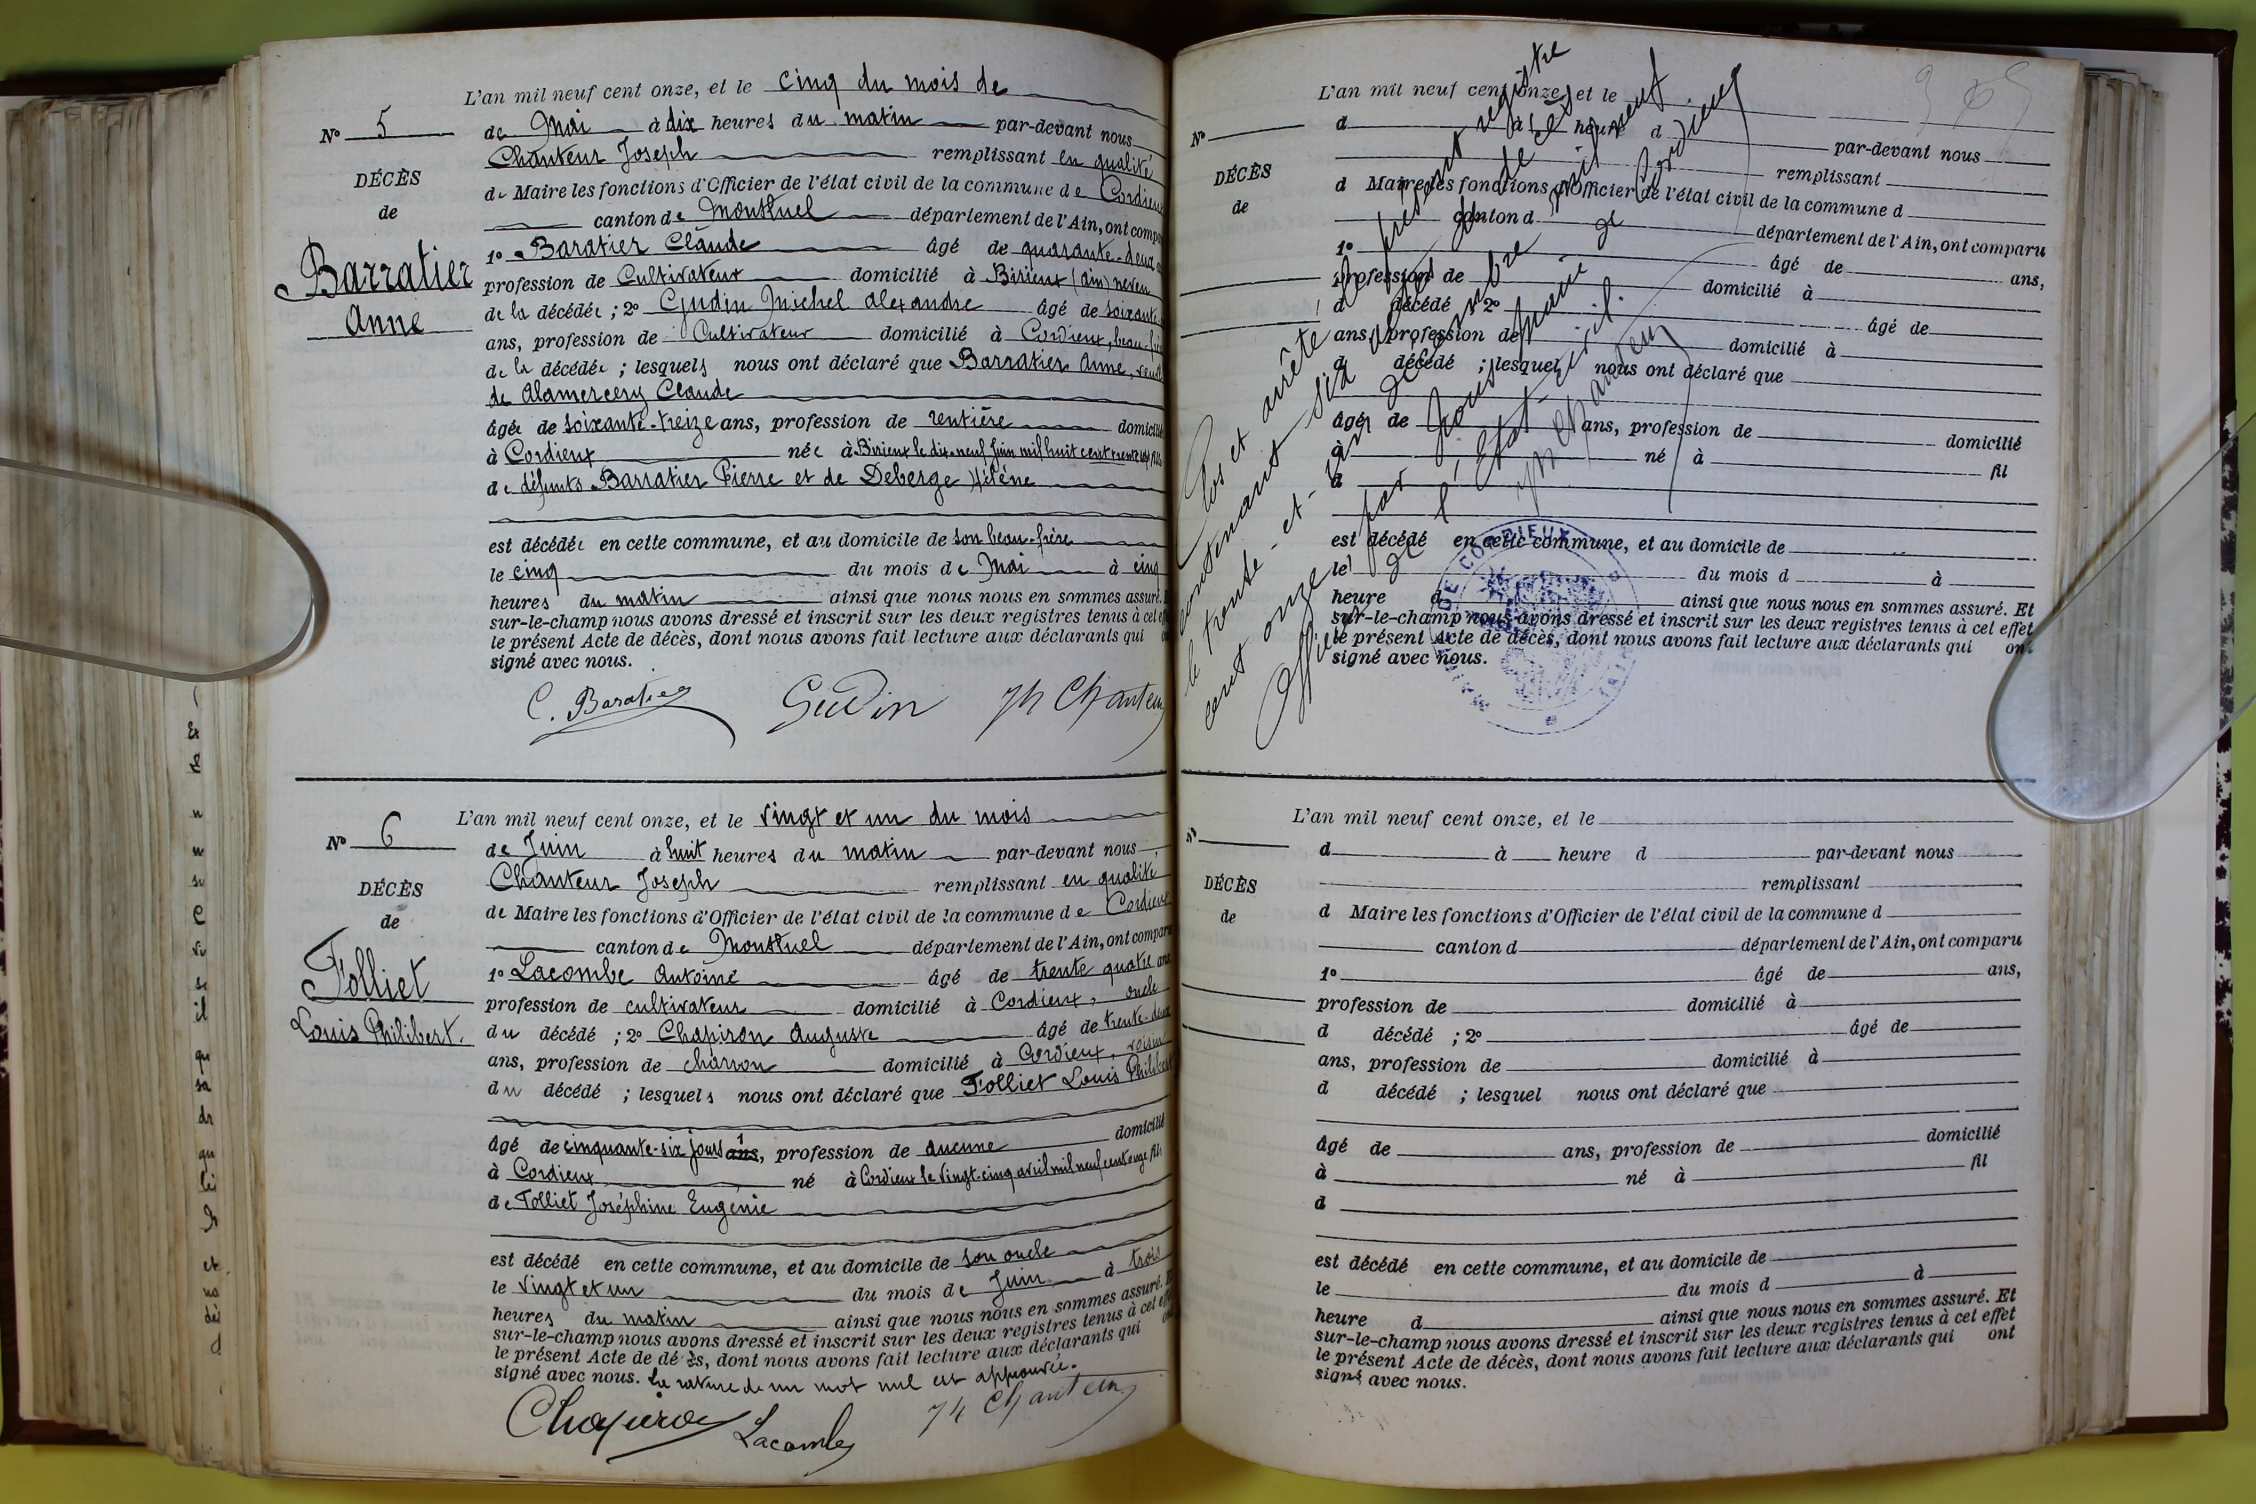 L'an mil neuf cent onze, et le cinq du mois de
N° 5 de Mai à dix heures du matin par-devant nous
Chanteur Joseph remplissant en qualité
DÉCÈS
de Maire les fonctions d'Officier de l'état civil de la commune de Cordieux
de
canton de Montluel département de l'Ain, ont compa
1° Baratier Claude âgé de quarante-deux
Barratier
profession de Cultivateur domicilié à Birieux (Ain) neveu
de la décédée ; 2° Gudin Michel Alexandre âgé de soixante
Anne
ans, profession de Cultivateur domicilié à Cordieux, beau-frè
de la décédée ; lesquels nous ont déclaré que Barratier Anne, veuve
de Alamercery Claude
âgée de soixante-treize ans, profession de rentière domicilié
à Cordieux née à Birieux le dix-neuf Juin mil huit cent trente sept fille
de défunts Barratier Pierre et de Deberge Hélène
est décédée en cette commune, et au domicile de son beau-frère
le cinq du mois de Mai à cinq
heures du matin ainsi que nous nous en sommes assuré. E
sur-le-champ nous avons dressé et inscrit sur les deux registres tenus à cet eff
le présent Acte de décès, dont nous avons fait lecture aux déclarants qui
signé avec nous.
C. Baratier Gudin Jh Chanteur
L'an mil neuf cent onze, et le vingt et un du mois
N° 6 de Juin à huit heures du matin par-devant nous
Chanteur Joseph remplissant en qualité
DÉCÈS
de Maire les fonctions d'Officier de l'état civil de la commune de Cordieux
de
canton de Montluel département de l'Ain, ont comparu
1° Lacombe Antoine âgé de trente quatre ans
Folliet
profession de cultivateur domicilié à Cordieux, oncle
Louis Philibert.
du décédé ; 2° Chapiron Auguste âgé de trente-deux
ans, profession de charron domicilié à Cordieux, voisin
du décédé ; lesquels nous ont déclaré que Folliet Louis Philibert
âgé de cinquante-six jours ans, profession de aucune domicilié
à Cordieux né à Cordieux le vingt-cinq avril mil neuf cent onze fils
de Folliet Joséphine Eugénie
est décédé en cette commune, et au domicile de son oncle
le vingt et un du mois de Juin à trois
heures du matin ainsi que nous nous en sommes assuré. E
sur-le-champ nous avons dressé et inscrit sur les deux registres tenus à cet effe
le présent Acte de décès, dont nous avons fait lecture aux déclarants qui
signé avec nous. La rature de un mot nul est approuvée.
Chapiron Lacombe Jh Chanteur
L'an mil neuf cent onze, et le
N° d à heure d par-devant nous
remplissant
DÉCÈS
d Maire les fonctions d'Officier de l'état civil de la commune d
de
canton d département de l'Ain, ont comparu
1° âgé de ans,
profession de domicilié à
d décédé ; 2° âgé de
ans, profession de domicilié à
d décédé ; lesquel nous ont déclaré que
âgé de ans, profession de domicilié
à né à fil
d
est décédé en cette commune, et au domicile de
le du mois d à
heure d ainsi que nous nous en sommes assuré. Et
sur-le-champ nous avons dressé et inscrit sur les deux registres tenus à cet effet
le présent Acte de décès, dont nous avons fait lecture aux déclarants qui ont
signé avec nous.
Clos et arrêté le présent registre
contenant six actes de décès
le trente-et-un décembre mil neuf
cent onze par Nous Maire
Officier de l'État-civil. de Cordieux
Jh Chanteur
MAIRIE DE CORDIEUX (AIN)
L'an mil neuf cent onze, et le
N° d à heure d par-devant nous
remplissant
DÉCÈS
d Maire les fonctions d'Officier de l'état civil de la commune d
de
canton d département de l'Ain, ont comparu
1° âgé de ans,
profession de domicilié à
d décédé ; 2° âgé de
ans, profession de domicilié à
d décédé ; lesquel nous ont déclaré que
âgé de ans, profession de domicilié
à né à fil
d
est décédé en cette commune, et au domicile de
le du mois d à
heure d ainsi que nous nous en sommes assuré. Et
sur-le-champ nous avons dressé et inscrit sur les deux registres tenus à cet effet
le présent Acte de décès, dont nous avons fait lecture aux déclarants qui ont
signé avec nous.